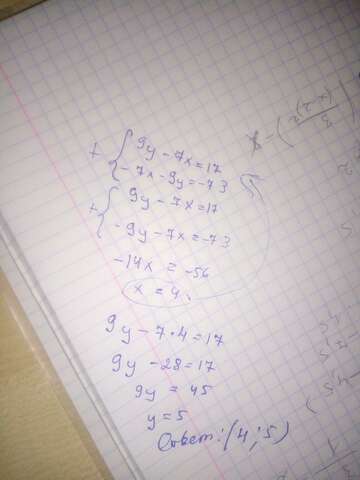 + { 9y - 7x = 17
- 7x - 9y = -73
+ { 9y - 7x = 17
- 9y - 7x = -73
-14x = -56
x = 4.
9y - 7·4 = 17
9y - 28 = 17
9y = 45
y = 5
Ответ: (4; 5)